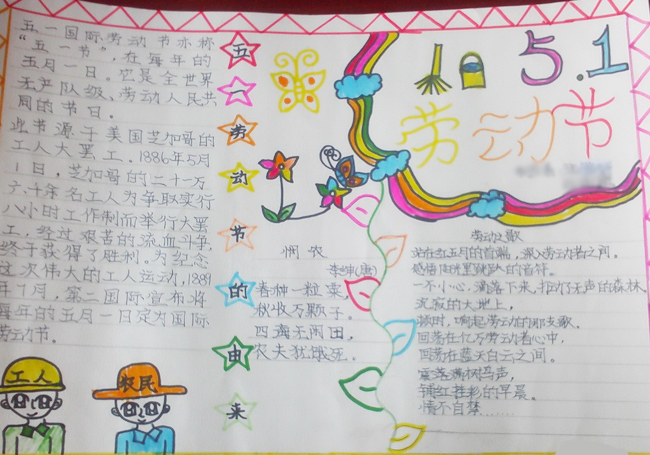 五一国际劳动节亦称
“五一节”，在每年的
五月一日。它是全世界
无产队级、劳动人民共
同的节日。
此节源于美国芝加哥的
工人大罢工。1886年5月
1日，芝加哥的二十一万
六千余名工人为争取实行
八小时工作制而举行大罢
工，经过艰苦的流血斗争，
终于获得了胜利。为纪念
这次伟大的工人运动，1889
年7月，第二国际宣布将
每年的五月一日定为国际
劳动节。
工人
农民
五一劳动节的由来
5.1
劳动节
悯农
李绅(唐)
春种一粒粟，
秋收万颗子。
四海无闲田，
农夫犹饿死。
劳动之歌
站在红五月的首端，深入劳动者之间。
一不小心，滴落下来，打动了无声的森林、
沉寂的大地上，
顿时，响起劳动的那支歌。
回荡在亿万劳动者心中，
回荡在蓝天白云之间。
震落满树鸟声，
铺红挂彩的早晨。
情不自禁……